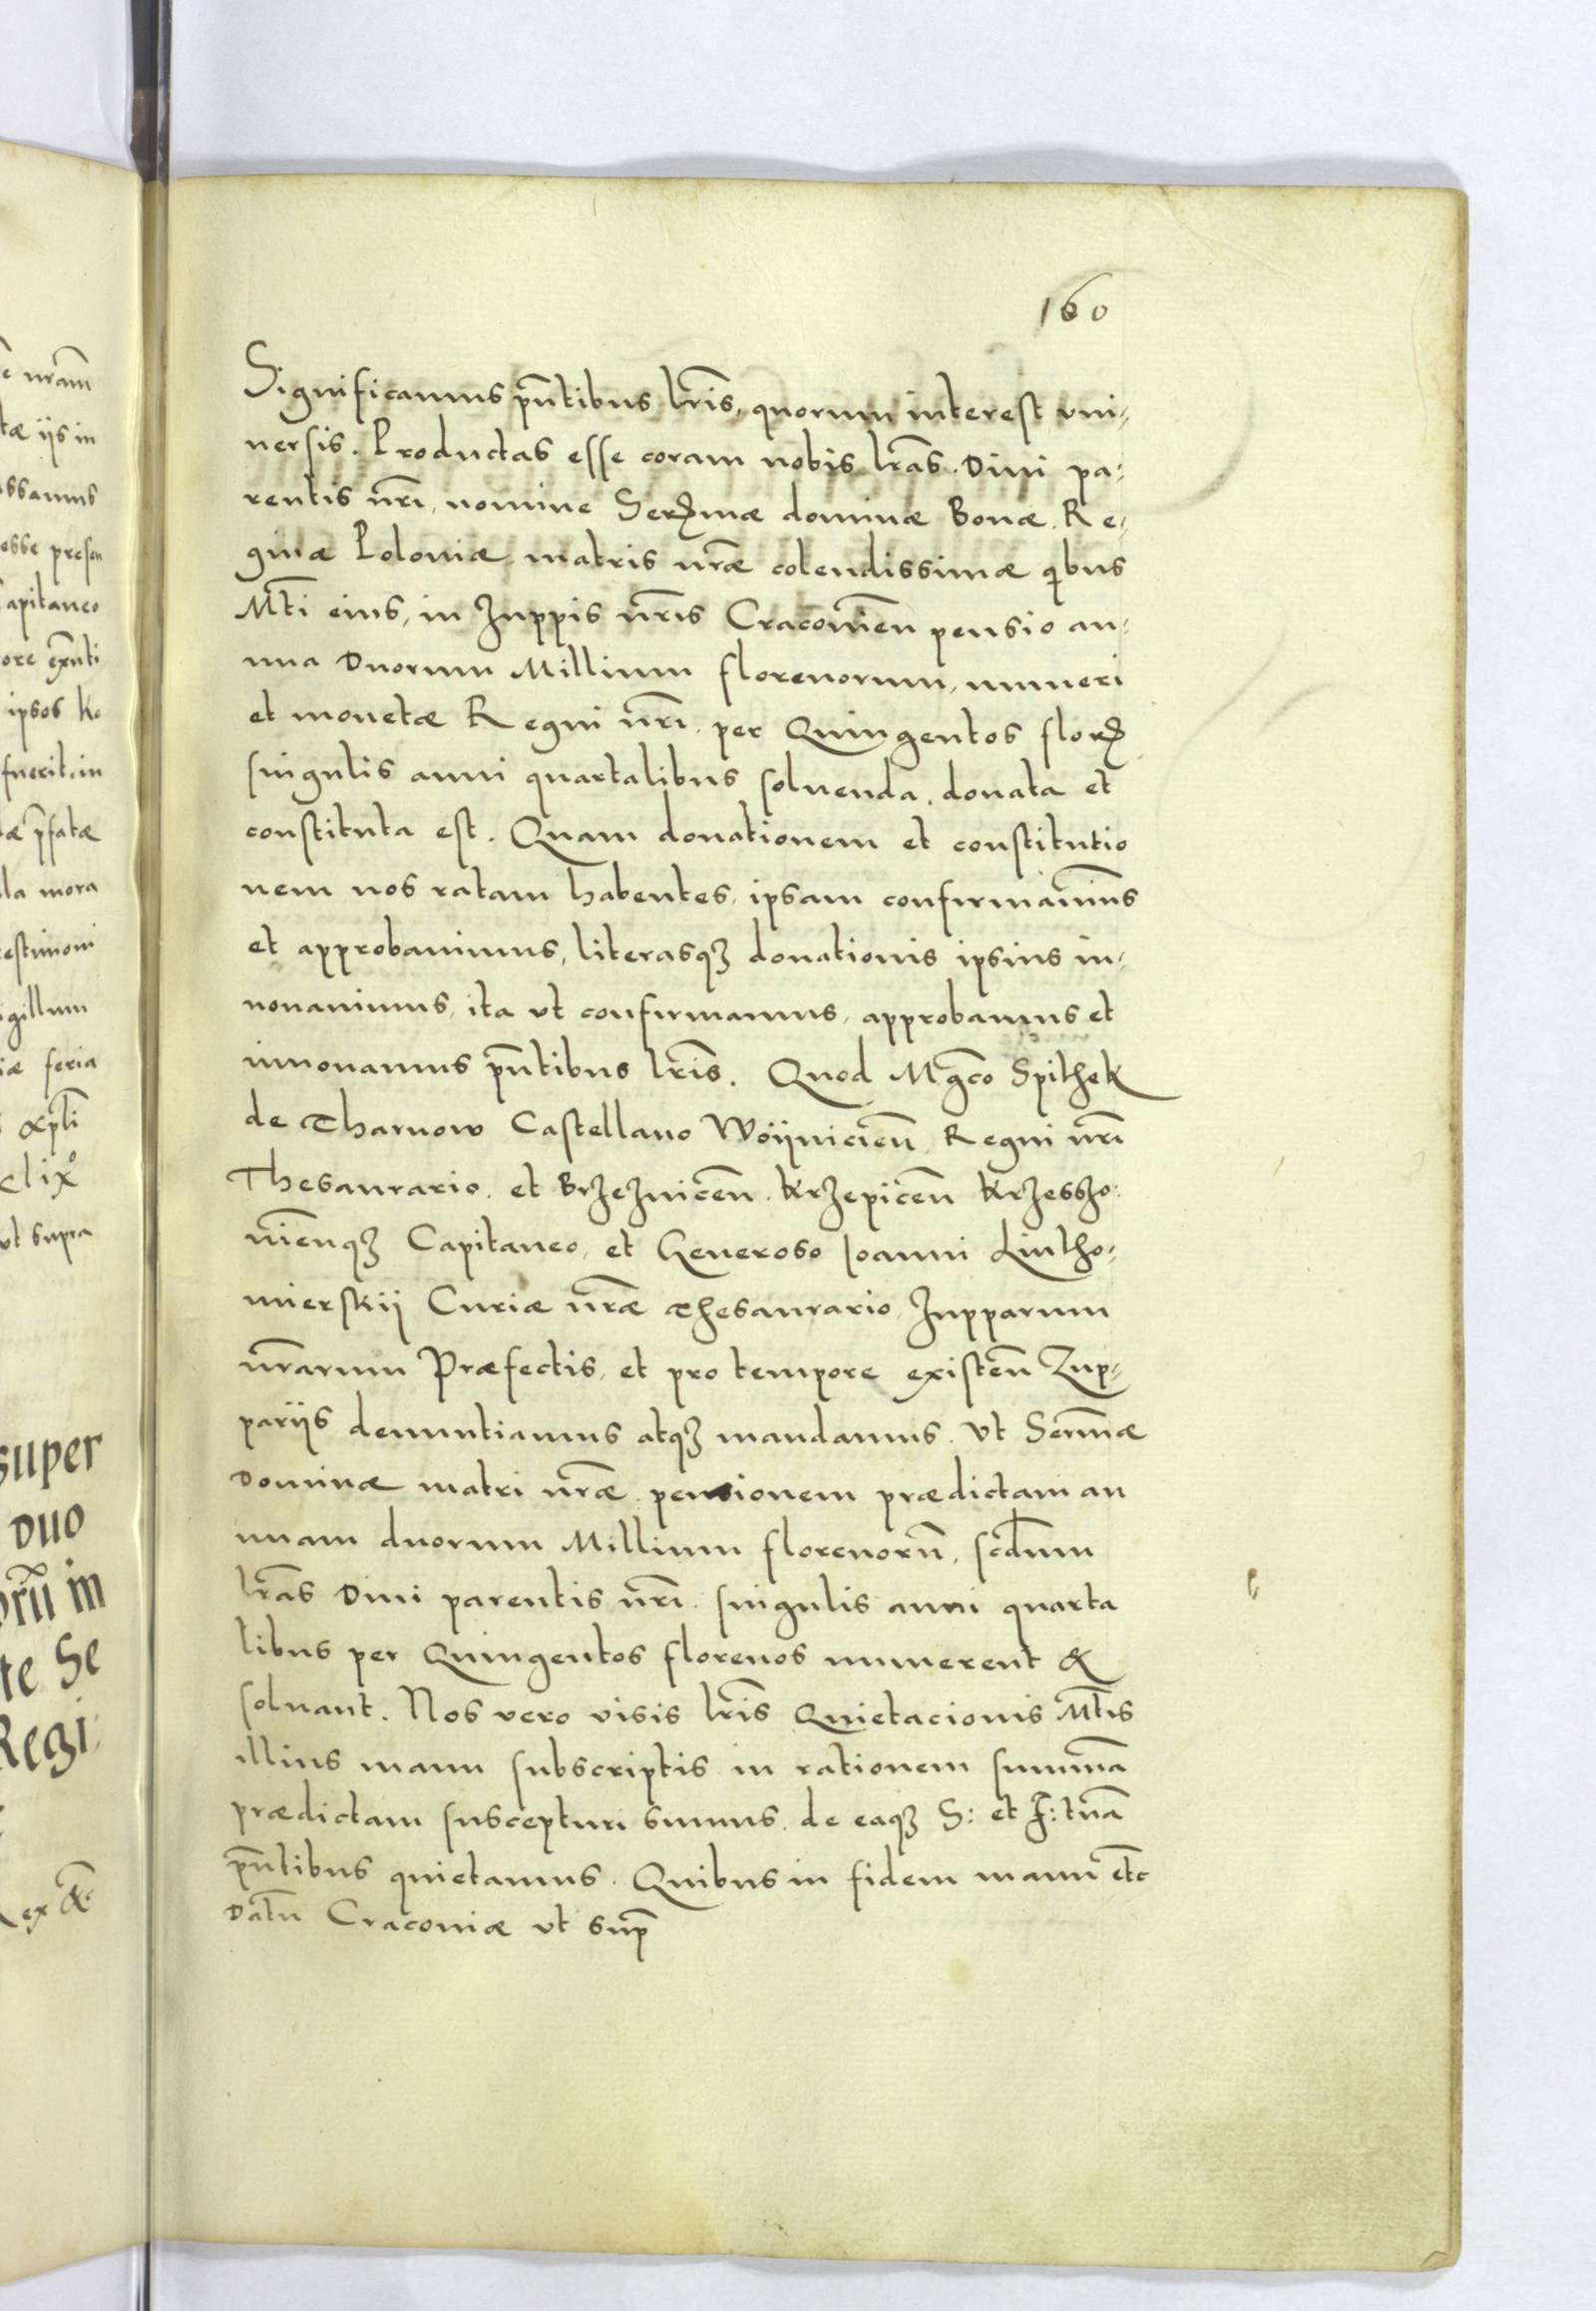 160
Significamus p̃ntibus lr̃is, quorum interest vni-
uersis. Productas esse coram nobis lr̃as. Diui pa-
rentis nr̃i, nomine Serꝫmæ dominæ Bonæ. Re-
ginæ Poloniæ matris nr̃æ colendissimæ qibus
Mt̃i eius, in Zuppis nr̃is Cracouien̄ pensio an-
nua Duorum Millium florenorum, numeri
et monetæ Regni nr̃i. per Quingentos florꝫ
singulis anni quartalibus soluenda, donata et
constituta est. Quam donationem et constitutio
nem nos ratam habentes, ipsam confirmauim̃us
et approbauimus, literasqꝫ donationis ipsius in-
nouauimus, ita vt confirmamus, approbamus et
innouamus p̃ntibus lr̃is. Quod Mg̃co Spithek
de Tharnow Castellano Woÿnicien̄, Regni nr̃i
Thesaurario. et Brzeznicen̄. Krzepicen̄ Krzesszo-
uien̄qꝫ Capitaneo, et Generoso Joanni Lutho-
mierskij Curiæ nr̃æ Thesaurario, Zupparum
nr̃arum Præfectis, et pro tempore existen̄ Zup-
parijs denuntiamus atqꝫ mandamus. Vt Serm̃æ
Dominæ matri nr̃æ. pensionem prædictam an
nuam duorum Millium florenorũ, scd̃um
lr̃as Diui parentis nr̃i. singulis anni quarta
libus per Quingentos florenos numerent &
soluant. Nos vero visis lr̃is Quietacionis Mt̃is
illius manu subscriptis in rationem summã
prædictam suscepturi sumus. de eaqꝫ S: et F: tuã
p̃ntibus quietamus. Quibus in fidem manu et̃c
Datũ Cracouiæ vt sup̃
e nr̃am
tæ ijs in
ssamus
esse presen
Capitaneo
ore exñti
ipsos Ko
fuerit, in
æ p̃fatæ
la mora
testimoni
igillum
iæ feria
xpĩ
clix°
vt supra
super
duo
orũ in
te Se
Regi
Rex &c.